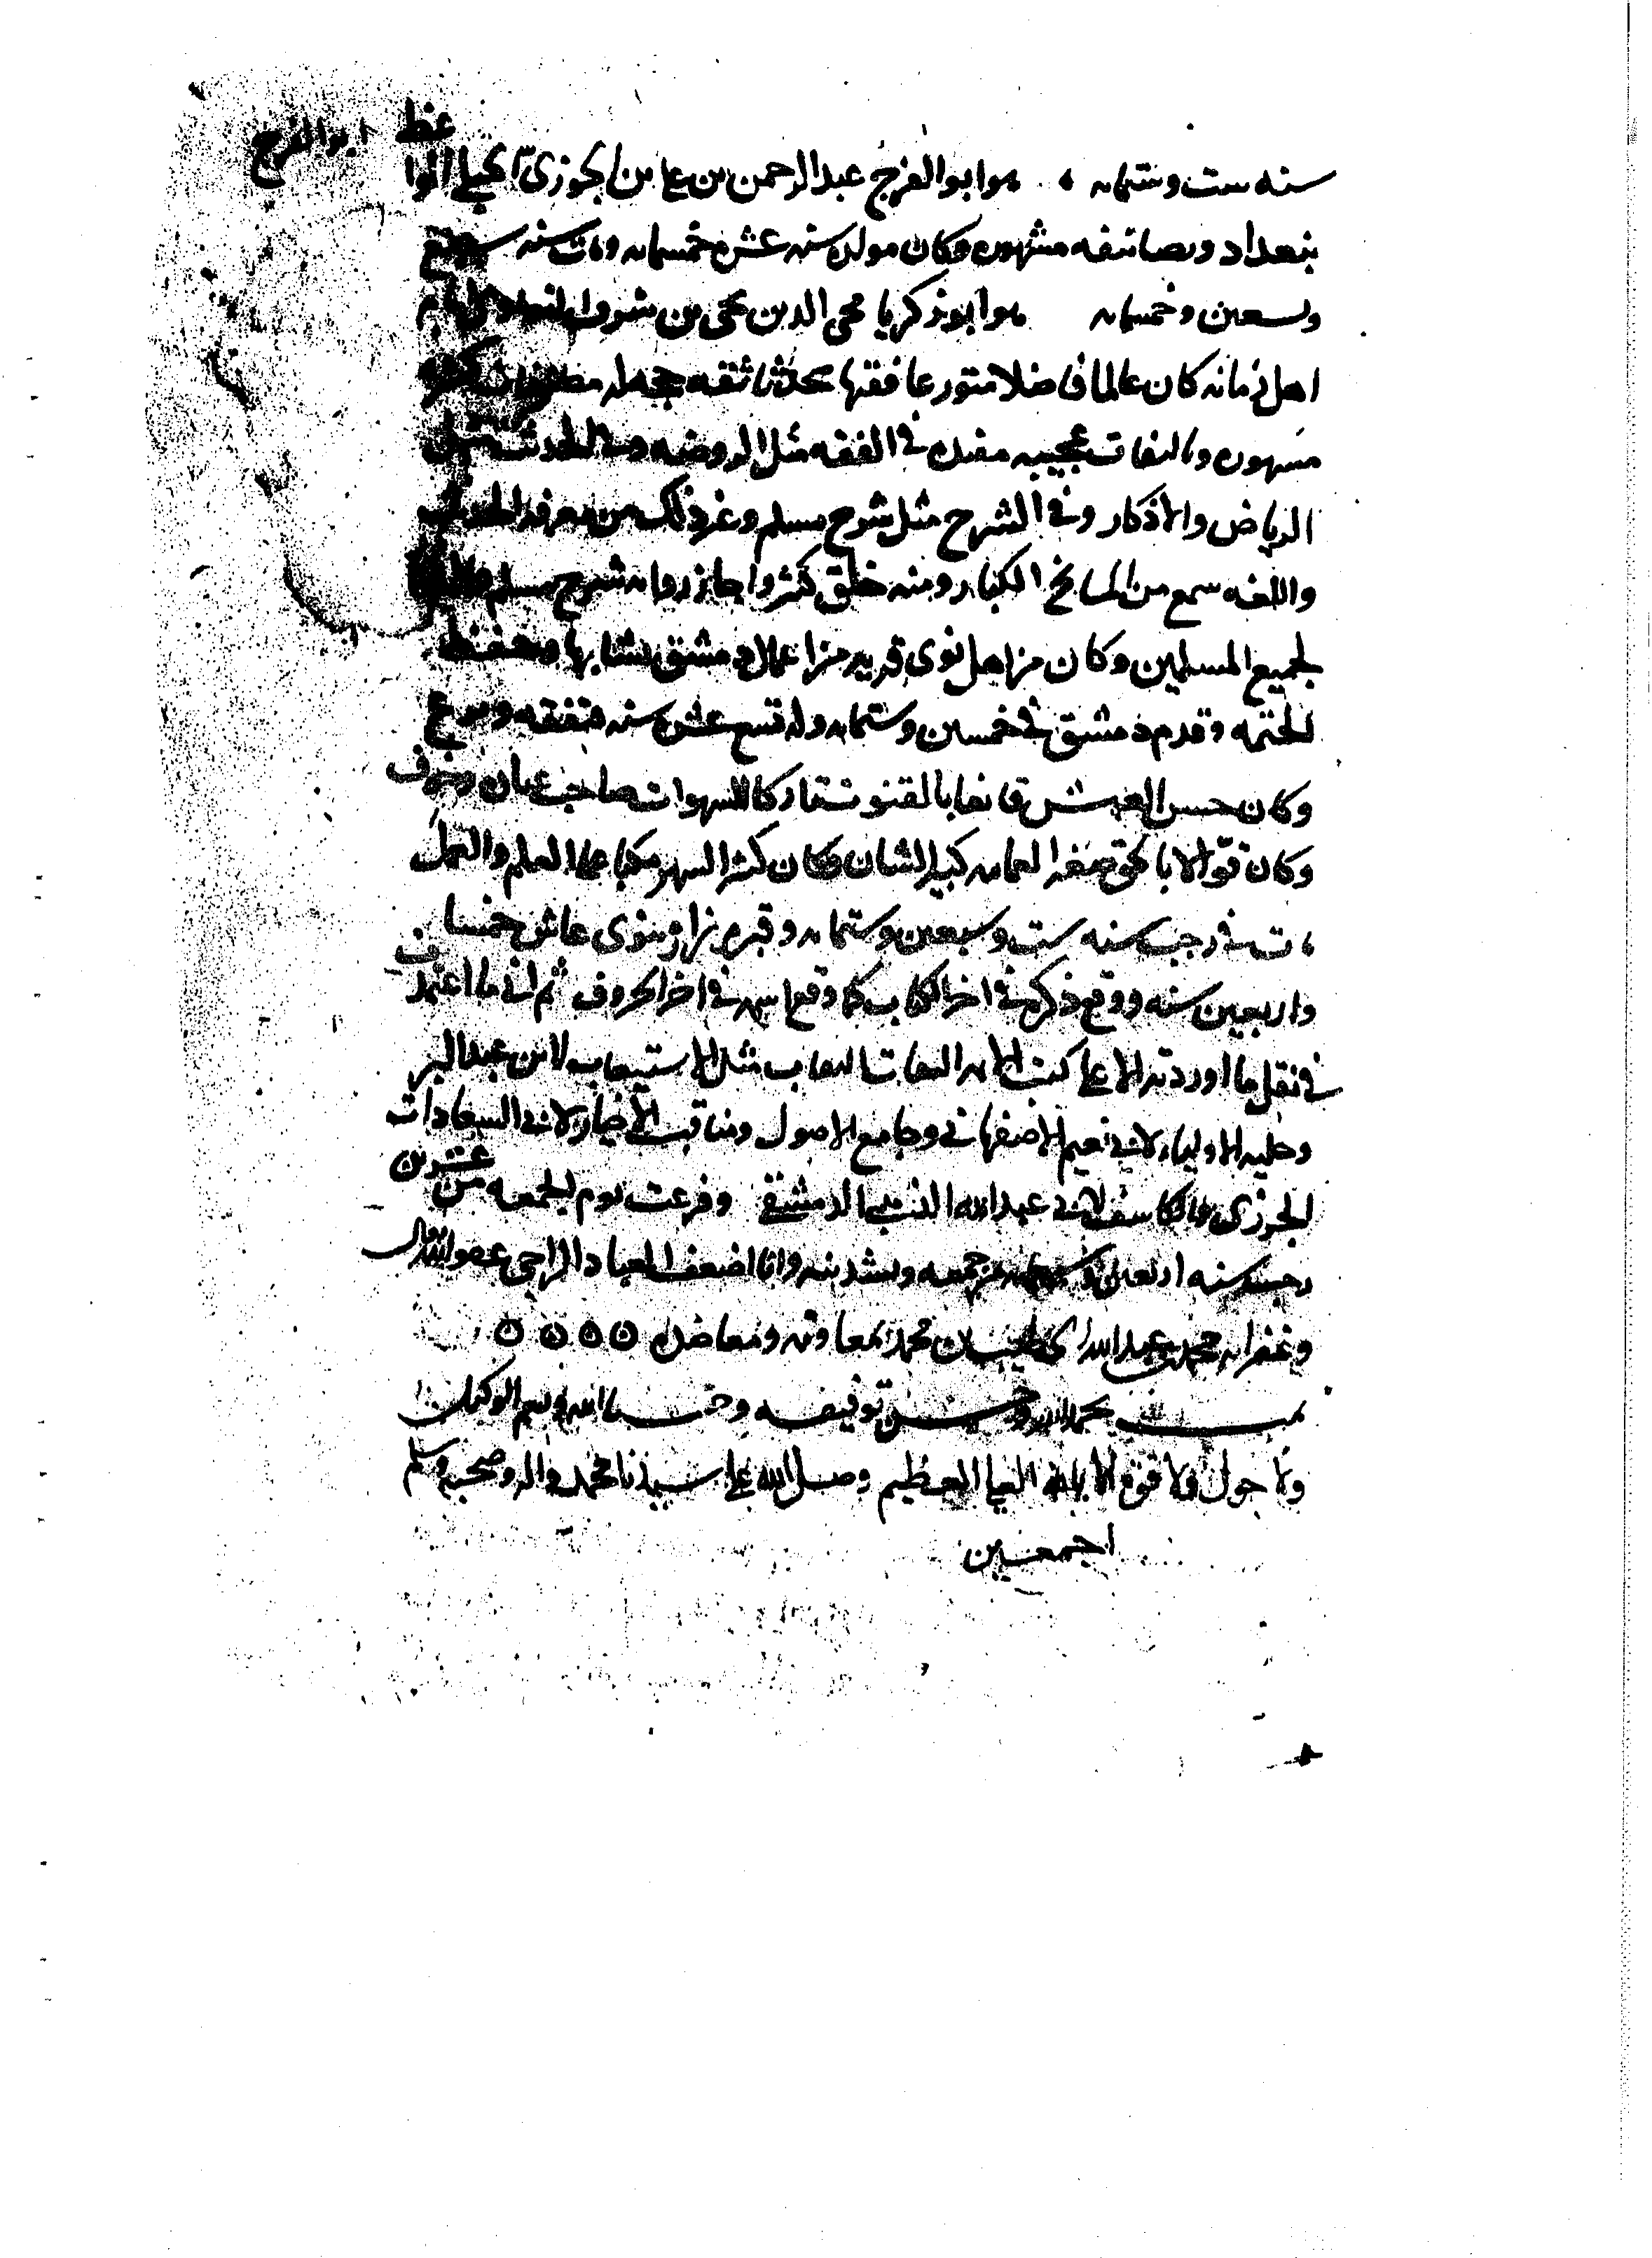 ابو الفرج
سنه ست وستمايه ، هو ابو الفرج عبد الرحمن بن على بن الجوزى الحنبلى الواعظ
ببغداد وتصانيفه مشهوره وكان مولده سنه عشر وخمسمايه ومات سنه سبع
وتسعين وخمسمايه هو ابو زكريا محى الدين يحى بن شرف النووى امام
اهل زمانه كان عالما فاضلا متورعا فقيها محدثا ثقه حجه له مصنفات كثيره
مشهوره وتاليفات عجيبه مفيده فى الفقه مثل الروضه وفى الحديث مثل
الرياض والاذكار وفى الشرح مثل شرح مسلم وغير ذلك من معرفه الحديث
واللغه سمع من المشايخ الكبار ومنه خلق كثير واجاز روايه شرح مسلم
لجميع المسلمين وكان من اهل نوى قريه من اعمال دمشق نشا بها وحفظ
الختمه وقدم دمشق فى خمسين وستمايه وله تسع عشره سنه فتفقه وبرع
وكان خشن العيش قانعا بالقوت تاركا للشهوات صاحب عباده وخوف
وكان قوالا بالحق صغير العمامه كبير الشان وكان كثير السهر مكبا على العلم والعمل
مات فى رجب سنه ست وسبعين وستمايه وقبره يزار بنوى عاش خمسا
واربعين سنه ووقع ذكره فى اخر الكتاب كما وقع اسمه فى اخر الحروف ثم انى ما اعتمدت
فى نقل ما اوردته الا على كتب الايمه الثقات مثل الاستيعاب لابن عبد البر
وحليه الاولياء لابى نعيم الاصفهانى وجامع الاصول ومناقب الاخيار لابى السعادات
الجزرى والكاشف لابى عبد الله الذهبى الدمشقى وفرغت يوم الجمعه عشرين من
رجب سنه اربعين وسبعمايه من جمعه وتشذيبه وانا اضعف العباد الراجى عفو الله تعالى
وغفرانه محمد بن عبد الله الخطيب بن محمد بمعاونه ومعاضده
تمت بحمد الله وحسن توفيقه وحسبنا الله ونعم الوكيل
ولا حول ولا قوه الا بالله العلى العظيم وصلى الله على سيدنا محمد واله وصحبه وسلم
اجمعين